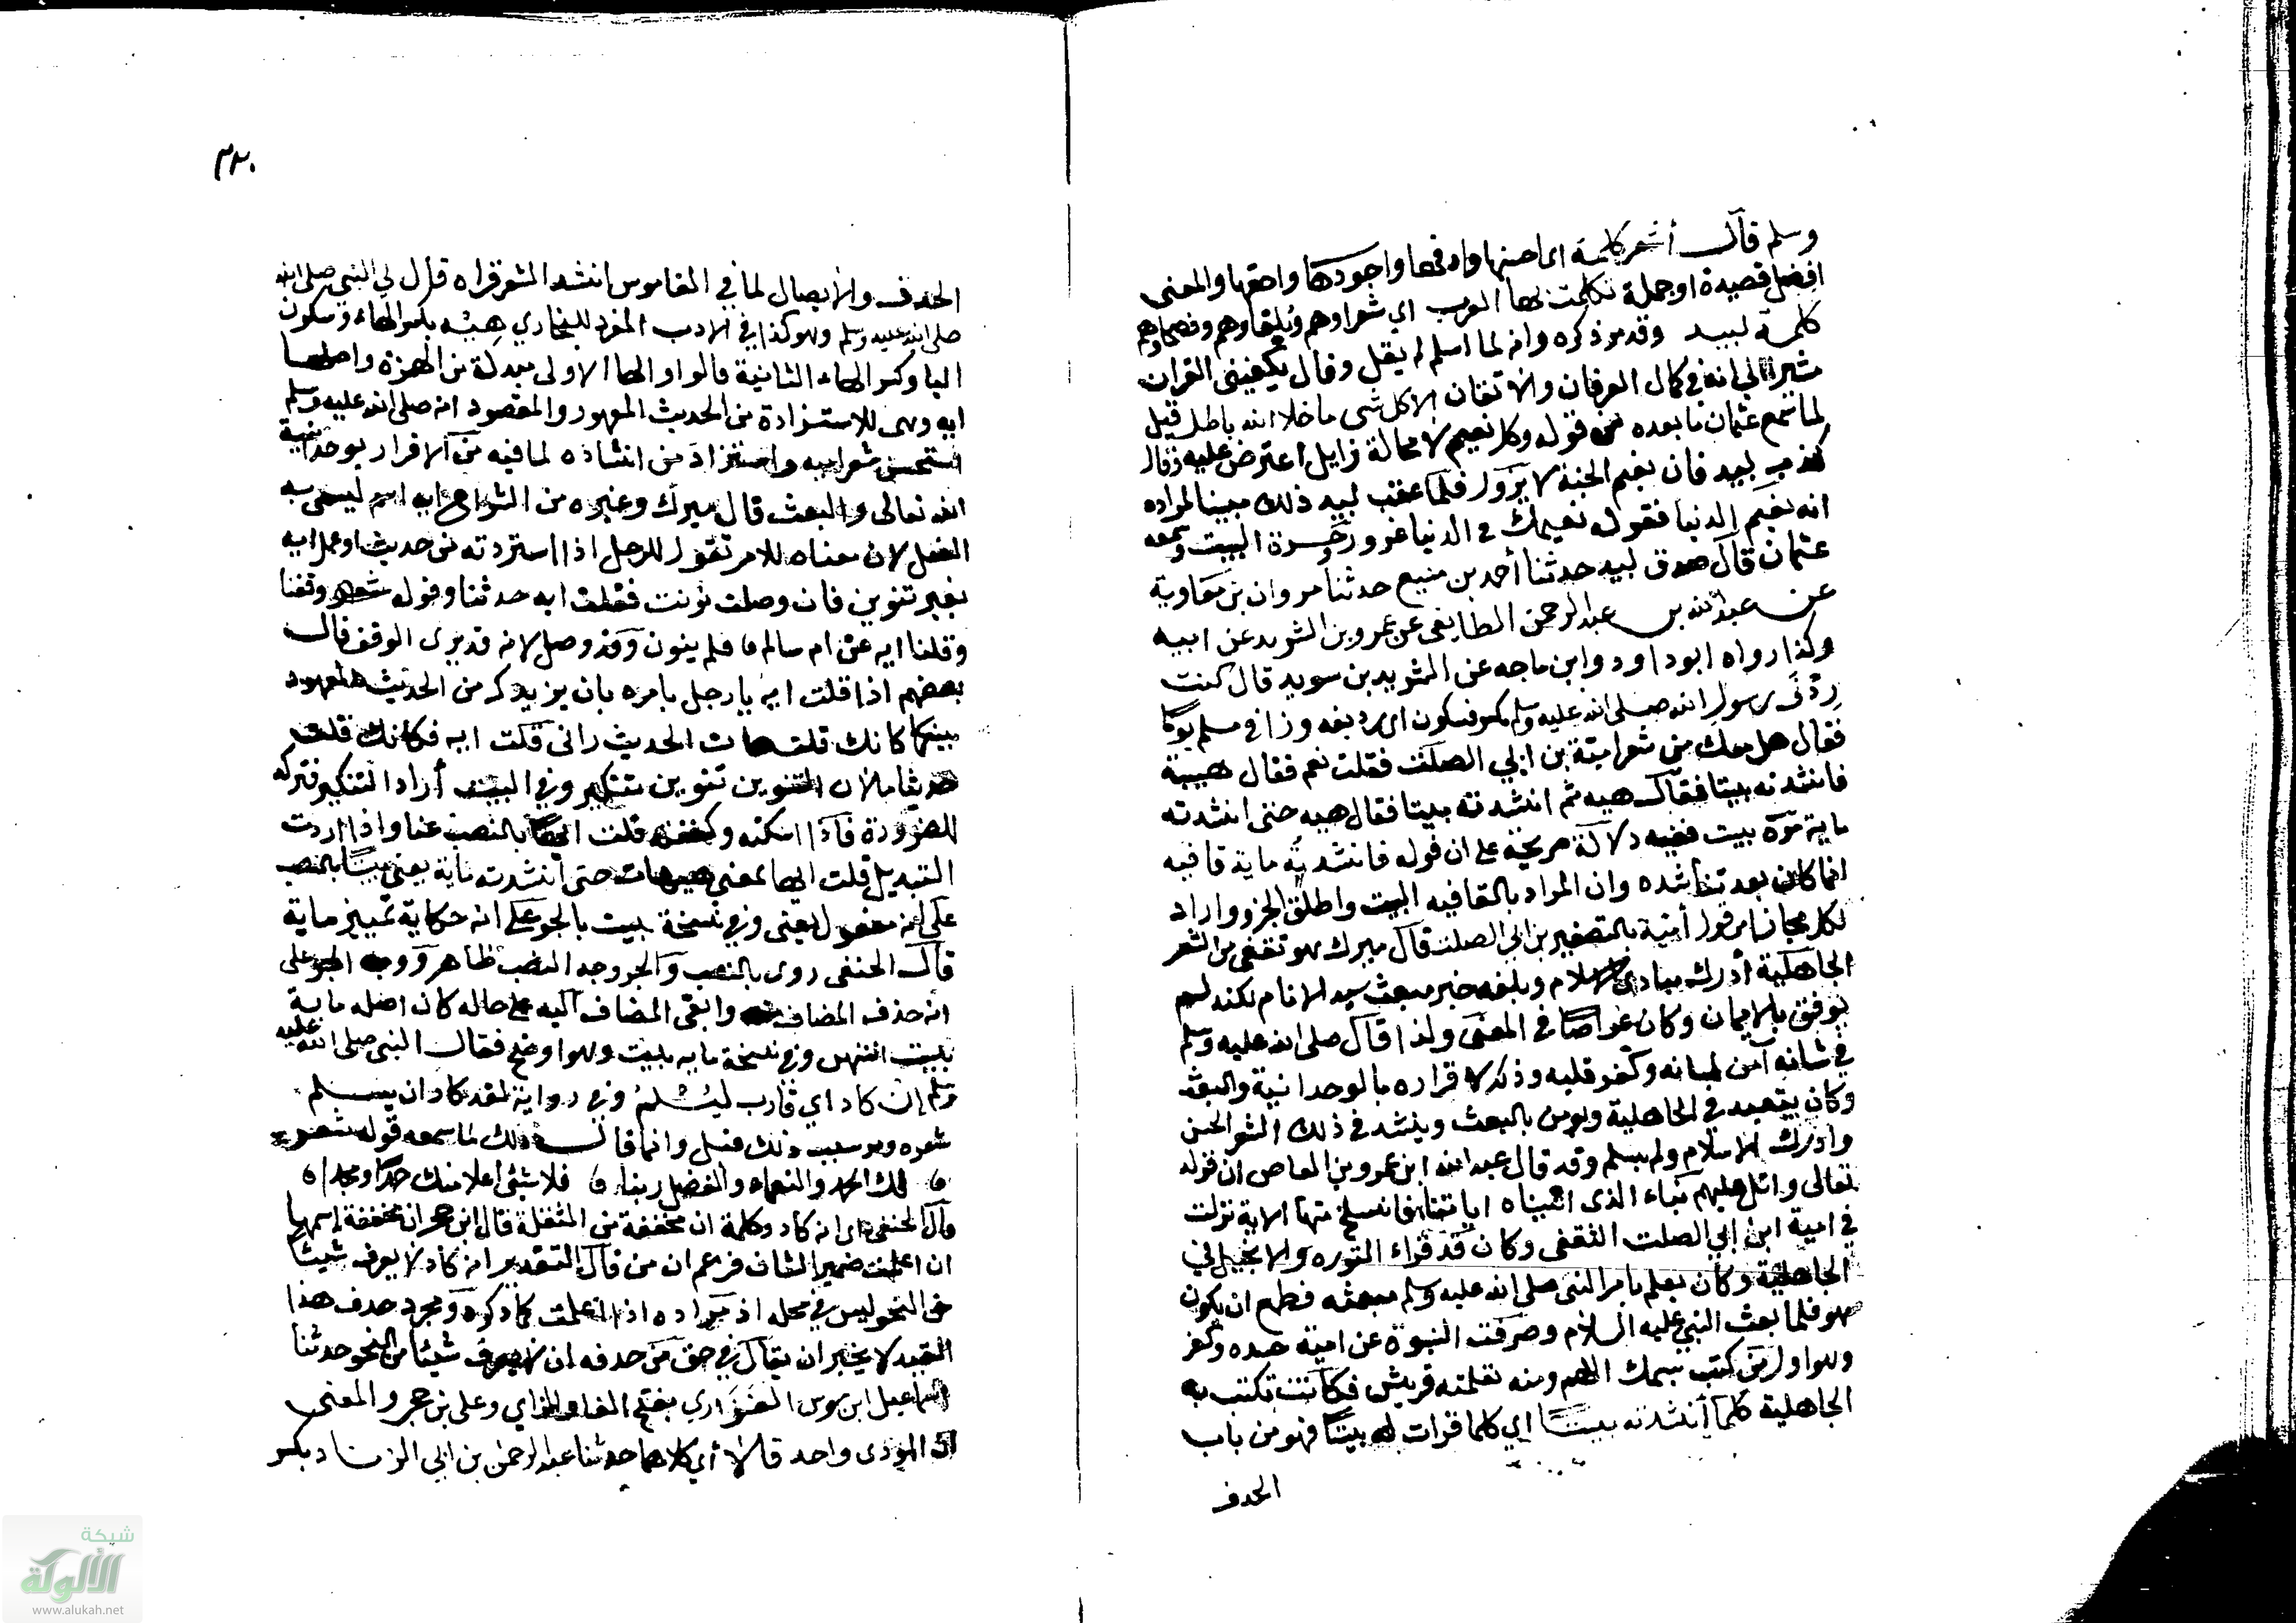 وسلم قال أشعر كلمة اى احسنها وادقها واجودها واحقها والمعنى
افضل قصيدة او جملة تكلمت بها العرب اي شعراوهم وبلغاوهم وفصحاوهم
كلمة لبيد وقد مر ذكره وانه لما اسلم لم يقل وقال يكفينى القران
مشيرا الي انه في كمال العرفان والاتقان الاكل شى ما خلا الله باطل قيل
لما سمع عثمان ما بعده من قوله وكل نعيم لا محالة زايل اعترض عليه وقال
كذب لبيد فان نعيم الجنة لا يزول فلما عقب لبيد ذلك مبينا لمراده
انه نعيم الدنيا فقوله نعيمك في الدنيا غرور وحسرة البيت وسمعه
عثمان قال صدق لبيد حدثنا أحمد بن منيع حدثنا مروان بن معاوية
عن عبد الله بن عبد الرحمن الطايفى عن عمرو بن الشريد عن ابيه
وكذا رواه ابو داود وابن ماجه عن الشريد بن سويد قال كنت
ردف رسول الله صلى الله عليه وسلم بكسر فسكون اى رديفه وزاد في مسلم يوما
فقال هل معك من شعر امية بن ابي الصلت فقلت نعم فقال هيه
فانشدته بيتا فقال هيه ثم انشدته بيتا فقال هيه حتى انشدته
ماية مرة بيت ففيه دلالة صريحة على ان قوله فانشدته ماية قافيه
انما كان بعد تناشده وان المراد بالقافيه البيت واطلق الجزو واراد
لكل مجازا من قول أمية بالتصغير بن ابي الصلت قال ميرك هو ثقفى من الشعر
الجاهلية أدرك مبادى الاسلام وبلغه خبر مبعث سيد الانام لكنه لم
يوفق بالايمان وكان غواصا في المعنى ولذا قال صلى الله عليه وسلم
في شانه آمن لسانه وكفر قلبه وذكر لاقراره بالوحدانية والبعث
وكان يتعبد في الجاهلية ويومن بالبعث وينشد في ذلك الشعر الحسن
وادرك الاسلام ولم يسلم وقد قال عبد الله ابن عمرو بن العاص ان قوله
تعالى واتل عليهم نباء الذى اتيناه اياتنا فانسلخ منها الاية نزلت
في امية ابن ابي الصلت الثقفى وكان قد قراء التوره والانجيل في
الجاهلية وكان يعلم بامر النبى صلى الله عليه وسلم مبعثه فطمع ان يكون
هو فلما بعث النبي عليه السلام وصرفت النبوة عن امية حسده وكفر
وهو اول من كتب بسمك اللهم ومنه تعلمته قريش فكانت تكتب به
الجاهلية كلما أنشدته بيتا اي كلما قرات له بيتا فهو من باب
الحدف
٣٢٠
الحدف والايصال لما في القاموس انشد الشعر قراه قال لي النبى صلى الله
صلى الله عليه وسلم وهو كذا في الادب المفرد للبخاري هيه بكسر الهاء وسكون
اليا وكسر الهاء الثانية قالوا والها الاولى مبدلة من الهمزة واصلها
ايه وهى للاستزادة من الحديث المعهود والمقصود انه صلى الله عليه وسلم
استحسن شعر اميه واستزاد من انشاده لما فيه من الاقرار بوحدانية
الله تعالى والبعث قال ميرك وغيره من الشراح ايه اسم ليسمى به
الفعل لان معناه للامر تقول للرجل اذا استزدته من حديث او عمل ايه
بغير تنوين فان وصلت نونت فقلت ايه حدثنا وقوله شعر وقفنا
وقلنا ايه عن ام سالم ه فلم ينون وقد وصل لانه قد يرى الوقف قال
بعضهم اذا قلت ايه يا رجل يامره بان يزيدك من الحديث المعهود
بينكما كانك قلت هات الحديث وانى قلت ايه فكانك قلت
حديثا ما لان التنوين تنوين تنكير وفي البيت أراد التنكير فتركه
للضرورة فاذا اسكته وكففته قلت ايها بالنصب عنا واذا اردت
التبديل قلت ايها بمعنى هيهات حتى أنشدته ماية يعنى بيتا بالنصب
على انه مفعول يعنى وفي نسخة بيت بالجر على انه حكاية تمييز ماية
قال الحنفى روى بالنصب والجر وجه النصب ظاهر ووجه الجر على
انه حذف المضاف وابقى المضاف اليه على حاله كان اصله ماية
بيت انتهى وفي نسخة ماية بيت وهو اوضح فقال النبى صلى الله عليه
وسلم إن كاد اي قارب ليسلم وفي رواية لقد كاد ان يسلم
شعره وهو سبب ذلك فضل وانما قال ذلك لما سمعه قوله شعر
ه لك الحمد والنعماء والفضل ربنا ه فلا شئى اعلا منك حمدا ومجدا ه
قال الحنفى اى انه كاد وكلمة ان مخففة من المثقلة قال ابن حجر ان مخففة اسمها
ان اعملت ضمير الشان فزعم ان من قال التقدير انه كاد لا يعرف شيئا
من النحو ليس في محله اذ مراده اذا اعملت كما ذكره ومجرد حدف هذا
القيد لا يجيز ان يقال في حق من حدفه ان لا يعرف شيئا من النحو حدثنا
اسماعيل ابن موسى الفزاري بفتح الفا والزاي وعلى بن حجر والمعنى
ان المودى واحد قالا أي كلاهما حدثنا عبد الرحمن بن ابي الزناد بكسر
شبكة
الألوكة
www.alukah.net